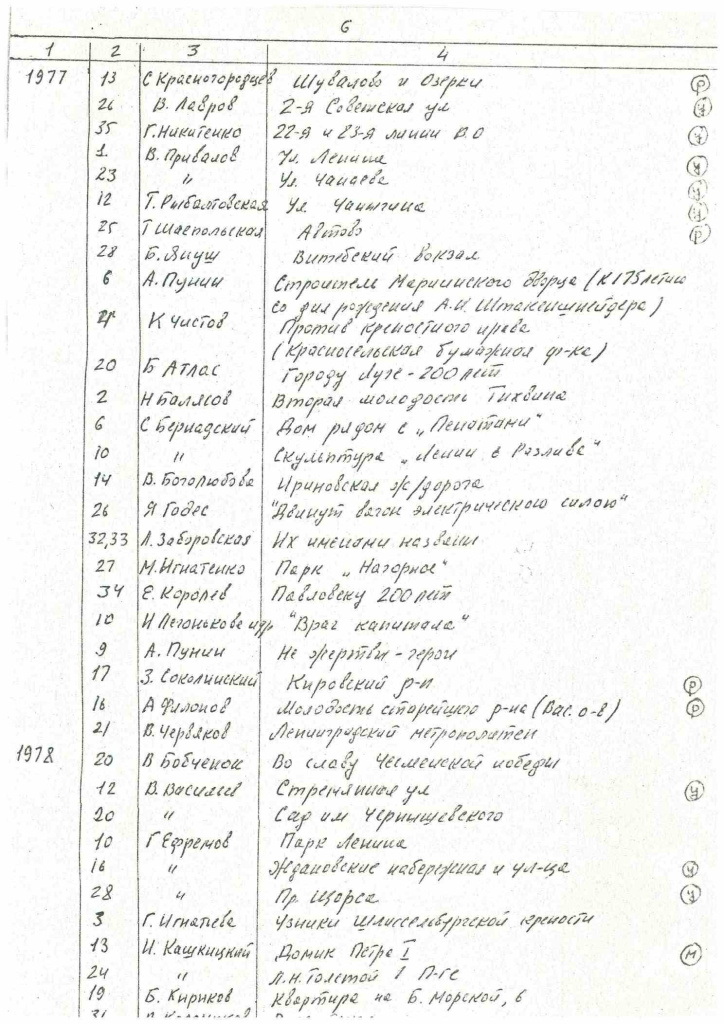 6
1 2 3 4
1977 13 С Красногородцев Шувалово и Озерки р
26 В. Лавров 2-я Советская ул у
35 Г. Никитенко 22-я и 23-я линии В.О у
1. В. Привалов Ул. Ленина у
23 " Ул. Чапаева у
12 Т. Рыбалтовская Ул. Чапыгина у
25 Т Шаепольская Автово р
28 Б. Януш Витебский вокзал
6 А. Пунин Строитель Мариинского дворца (К 175летию
со дня рождения А.И. Штакеншнейдера)
К Чистов Против крепостного ярева
(Красносельская бумажная ф-ка)
20 Б Атлас Городу Луге - 200 лет
2 Н Балясов Вторая молодость Тихвина
6 С Бернадский Дом рядом с „Пенатами"
10 " Скульптура „Ленин в Разливе"
14 В. Боголюбова Ириновская ж/дорога
26 Я Годес "Двинут вагон электрического силою"
32,33 Л. Заборовская Их именами названы
27 М. Игнатенко Парк „Нагорное"
34 Е. Королев Павловску 200 лет
10 И Легоньков и др "Враг капитала"
9 А. Пунин Не жертвы - герои
17 З. Соколинский Кировский р-н р
16 А Филонов Молодость старейшего р-на (Вас. о-в) р
21 В. Червяков Ленинградский метрополитен
1978 20 В Бобченок Во славу Чесменской победы
12 В. Васильев Стремянная ул у
20 " Сад им Чернышевского
10 Г Ефремов Парк Ленина
16 " Ждановские набережная и ул-ца у
28 " Пр. Щорса у
3 Г. Игнатьева Узники Шлиссельбургской крепости
13 И. Кашкицкий Домик Петра I м
24 " Л.Н. Толстой в П-ге
19 Б. Кириков Квартира на Б. Морской, 6
31